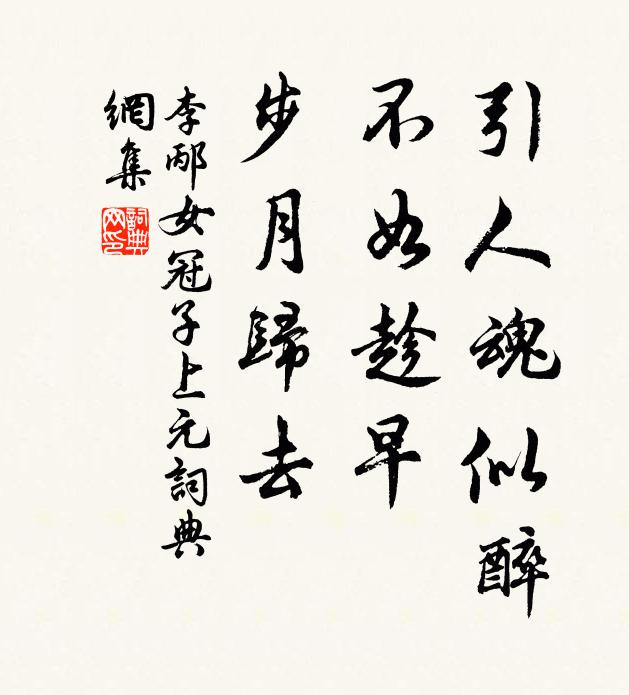 引人魂似醉
不如趁早
步月歸去
李邴女冠子上元詞典
網集
詞典
网印